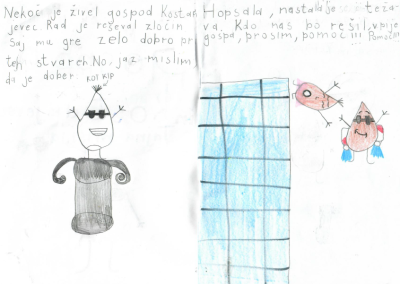 Nekoč je živel gospod Kostan
jevec. Rad je reševal zločin
Saj mu gre zelo dobro pri
teh stvareh. No, jaz mislim,
da je dober.
KOT KIP
Hopsala, nastala je teža-
va. Kdo nas bo rešil, vpije
gospa, prosim, pomoč!!! Pomoč!